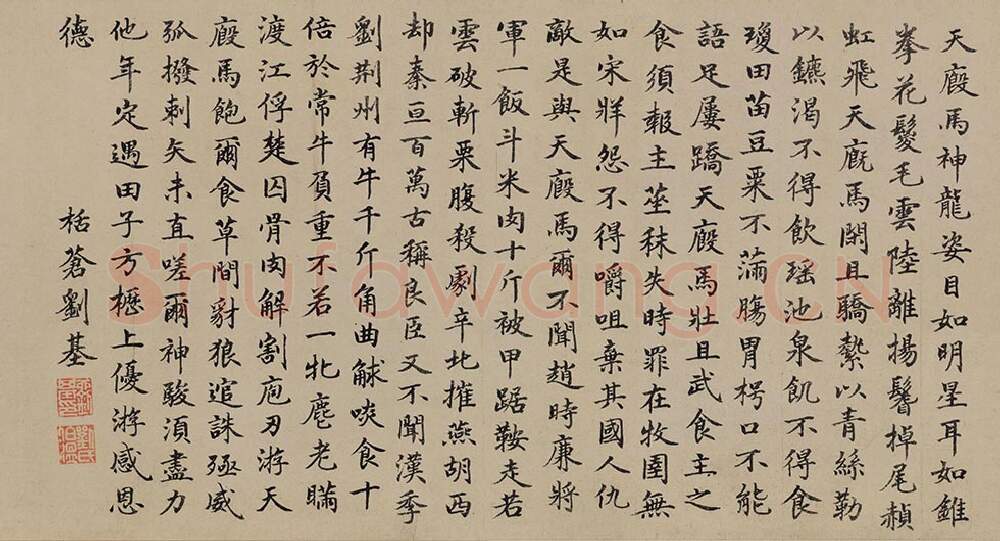 天廄馬神龍姿目如明星耳如錐
拳花鬉毛雲陸離揚鬐掉尾赬
虹飛天廄馬閑且驕縶以青絲勒
以鑣渴不得飲瑤池泉飢不得食
瓊田苗豆粟不滿腸胃枵口不能
語足屢蹻天廄馬壯且武食主之
食須報主莝秣失時罪在牧圉無
如宋羊怨不得嚼咀棄其國人仇
敵是與天廄馬爾不聞趙時廉將
軍一飯斗米肉十斤被甲踞鞍走若
雲破斬栗腹殺劇辛北摧燕胡西
却秦亘百萬古稱良臣又不聞漢季
劉荆州有牛千斤角曲觩啖食十
倍於常牛負重不若一牝麀老瞞
渡江俘楚囚骨肉解割庖刃游天
廄馬飽爾食草間豺狼逭誅殛威
弧撥剌矢未直嗟爾神駿湏盡力
他年定遇田子方櫪上優游感恩
德
栝蒼劉基
Shufawang.CN